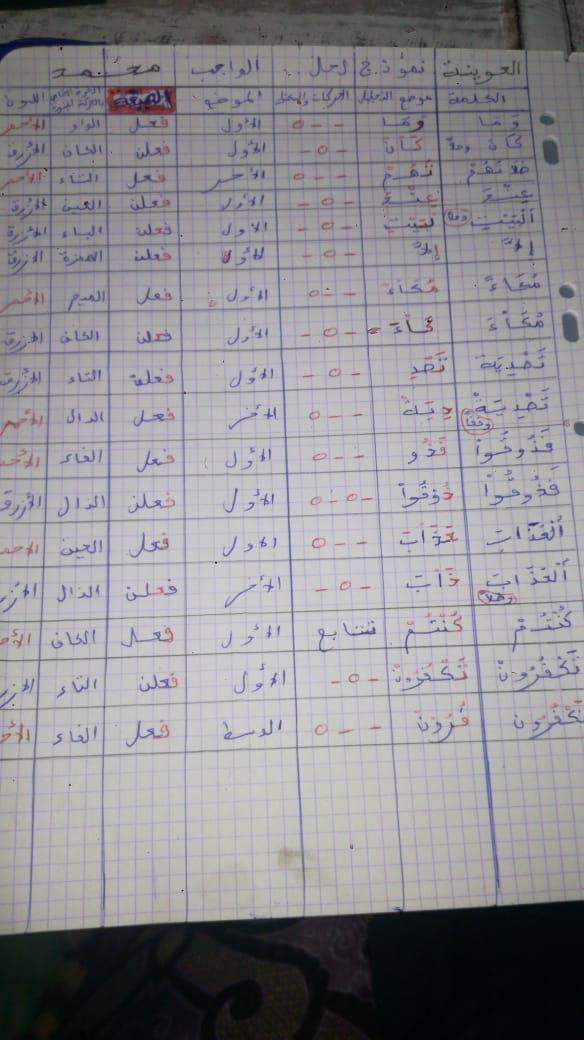 العوينة نموذج لحل .. الواجب محمد
الكلمة موضع التحليل الحركات الموضع الصيغة اللون
وَمَا وَمَا --o الأول فعل الواو الأحمر
كَانَ وصلا كَانَ -o- الأول فعلن الكاف الأزرق
صلاتهم تُهُمْ --o الأخر فعل التاء الأحمر
عِنْدَ عِنْدَ -o- الأول فعلن العين الأزرق
اَلْبَيْتِ وصلا لبَيْتِ -o- الأول فعلن الباء الأزرق
إلاَّ إلاَّ -o- الأول فعلن الهمزة الأزرق
مُكَاءً مُكَاءَ --o الأول فعل الميم الأحمر
مُكَاءً كَاءَ -o- الأول فعلن الكاف الأزرق
تَصْدِيَةً تَصْدِ -o- الأول فعلن التاء الأزرق
تَصْدِيَةً وقفا دِيَهْ --o الأخر فعل الدال الأحمر
فَذُوقُواْ فَذُو --o الأول فعل الفاء الأحمر
فَذُوقُواْ ذُوقُواْ -o-o الأول فعلن الذال الأزرق
اَلْعَذَابَ عَذَابَ --o الأول فعل العين الأحمر
اَلْعَذَابَ وصلا ذَابَ -o- الأخر فعلن الذال الأزرق
كُنْتُمْ كُنْتُمْ تتابع الأول فعل الكاف الأحمر
تَكْفُرُونَ تَكْفُرُونْ -o- الأول فعلن التاء الأزرق
تَكْفُرُونَ فُرُونَ --o الوسط فعل الفاء الأحمر